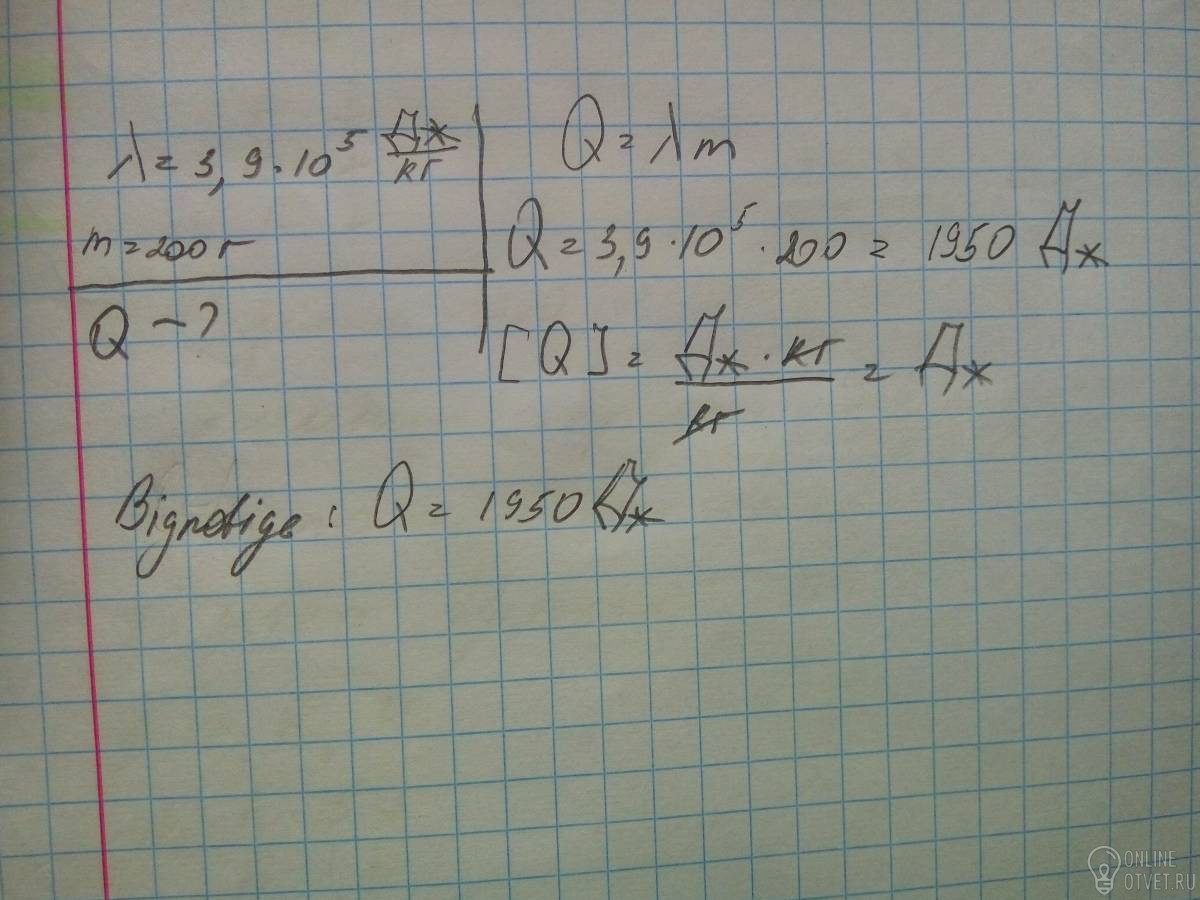 λ = 3,9 · 10^5 Дж/кг
m = 200 г
Q - ?
Q = λ m
Q = 3,9 · 10^5 · 200 = 1950 Дж
[Q] = Дж · кг / кг = Дж
Відповідь : Q = 1950 Дж
ONLINE
OTVET.RU